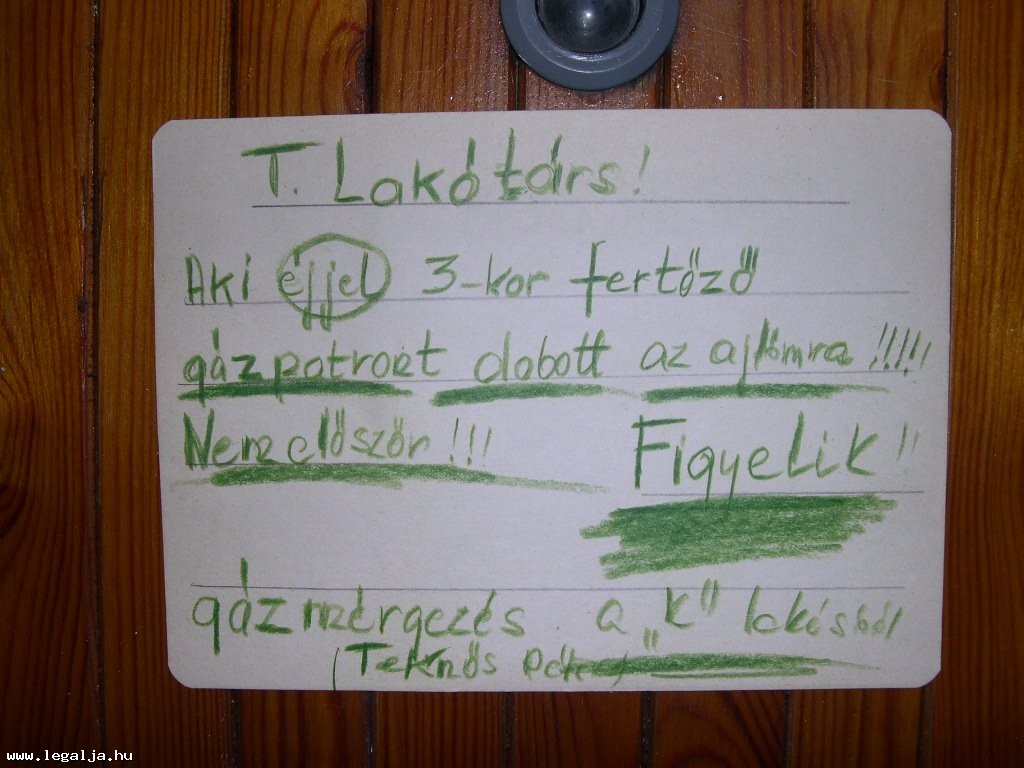 T. Lakótárs!
Aki éjjel 3-kor fertőző
gázpatront dobott az ajtómra !!!!!
Nem először!!! Figyelik!!
gáz mérgezés a „K” lakásból
(Teknős Péter)
www.legalja.hu